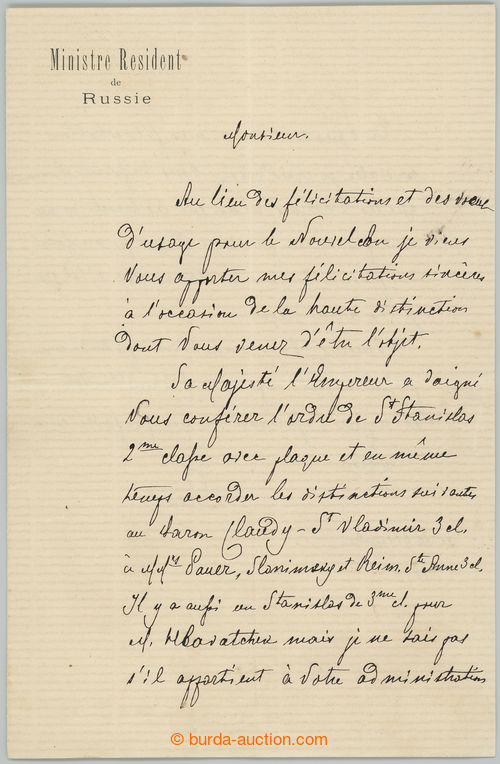 Ministre Resident
de
Russie
Monsieur.
Au lieu des félicitations et des vœux
d'usage pour le Nouvel an je viens
Vous apporter mes félicitations sincères
à l'occasion de la haute distinction
dont Vous venez d'être l'objet.
Sa Majesté l'Empereur a daigné
Vous conférer l'ordre de St Stanislas
2me classe avec plaque et en même
temps accorder les distinctions suivantes
au baron – St Vladimir 3 cl.
à MMrs Pauer, et Reim. Ste Anne 3 cl.
Il y a aussi un Stanislas de 3me cl. pour
M. mais je ne sais pas
s'il appartient à Votre administration
© burda-auction.com